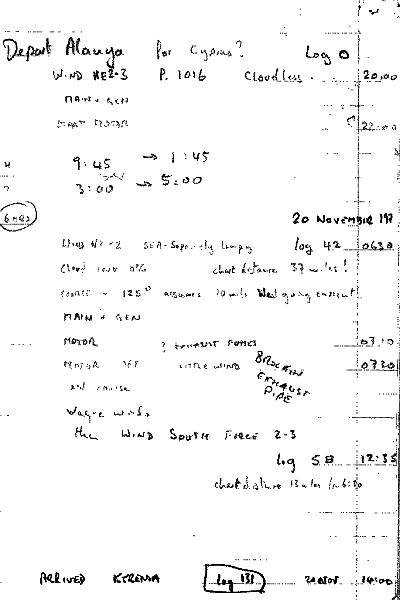 Depart Alanya for Cyprus? Log 0
WIND NE 2-3 P. 1016 Cloudless. 20:00
MAIN + GEN
START MOTOR 22:00
9:45 → 1:45
3:00 → 5:00
6 HRS
20 NOVEMBER 197
Wind NE -2 SEA- lumpy log 42 0630
Cloud 0% chart distance 37 miles!
COURSE - 125° assumes West going current
MAIN + GEN
MOTOR ? EXHAUST FUMES 0710
MOTOR OFF LITTLE WIND BROKEN EXHAUST PIPE 0730
Vague winds
then WIND SOUTH FORCE 2-3
log 58 12:35
chart distance 13 miles
ARRIVED KYRENIA Log 131 21 NOV. 14:00